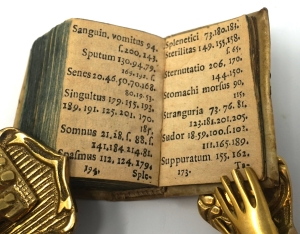 Sanguin. vomitus 94.
f. 200, 243.
Sputum 130.94.79.
Senes 20.46.50.70.168.
80.
Singultus 179.155.193.
189. 191. 125. 201. 170.
185.
Somnus 21.18. f. 88. f.
141.184 214.81.
Spasmus 112. 124. 179.
194. Sple-
Splenetici 73.180.181.
Sterilitas 149.155.158.
f. 65.
Sternutatio 206. 170.
144.150.
Stomachi morsus 90.
115.
Stranguria 73. 76. 81.
123.181.205.
Sudor 18.59.100. f. 10?.
111.165.189.
Suppuratum 155. 162.
173.